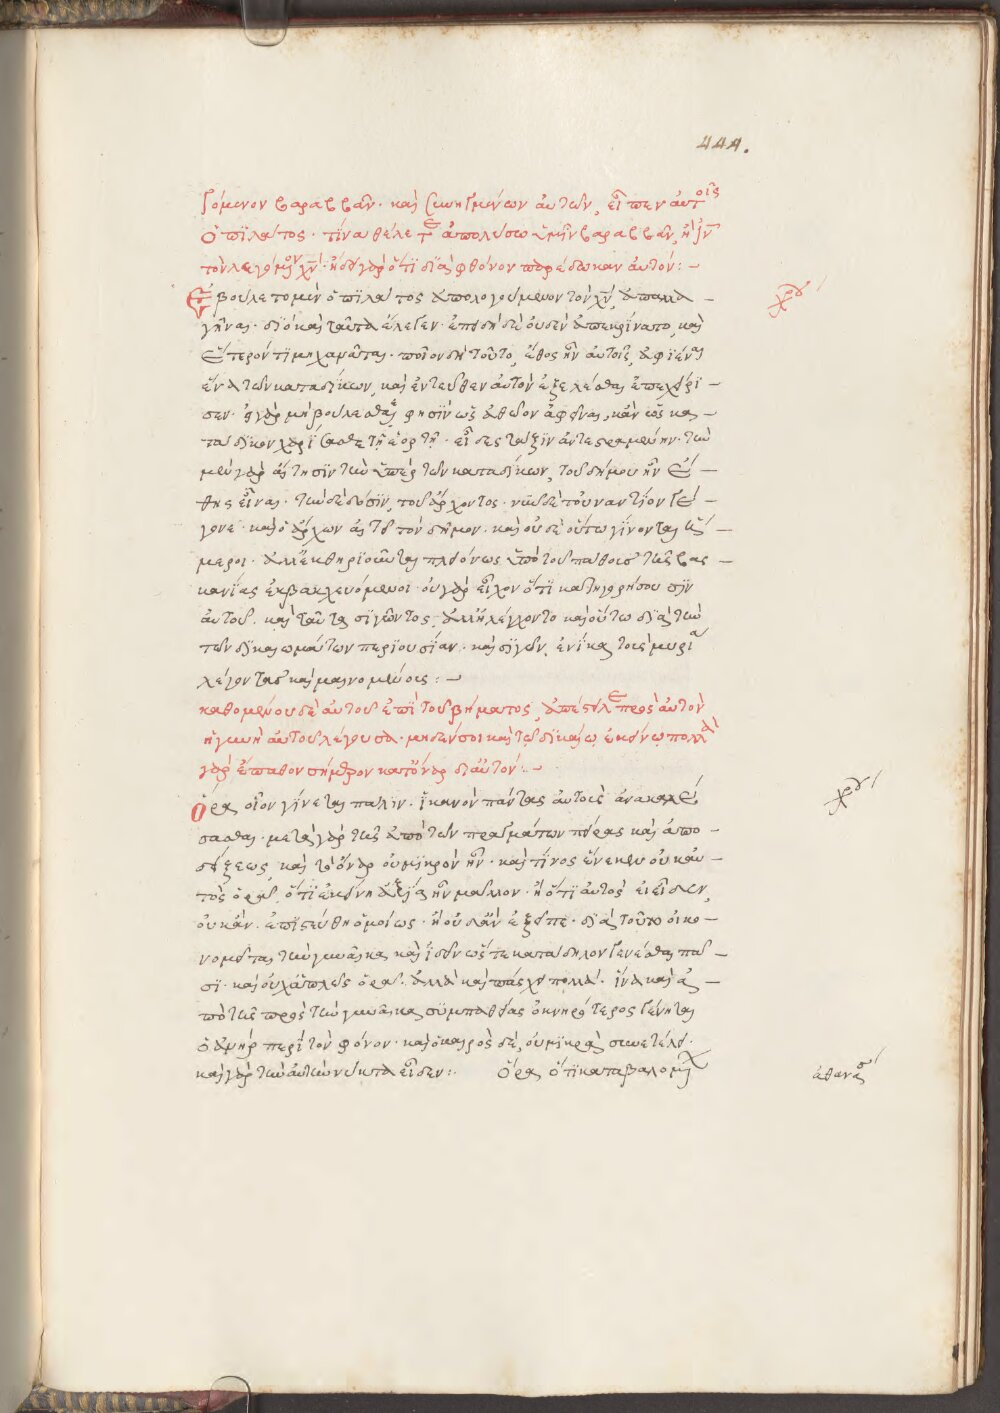 444.
γόμενον βαραββᾶν· καὶ συνηγμένων αὐτῶν, εἶπεν αὐτοῖς
ὁ πϊλάτος· τίνα θέλετε ἀπολύσω ὑμῖν βαραββᾶν, ἢ ἰν
τὸν λεγόμενον χν· ἤδει γὰρ ὅτϊ διὰ φθόνον παρέδωκαν αὐτόν:–
Ἐβούλετο μὲν ὁ πϊλάτος ἀπολογούμενον τὸν χν, ἀπαλλα–
γῆναι· διὸ καὶ ταῦτα ἔλεγεν· ἐπειδὴ δὲ οὐδὲν ἀπεκρίνατο, καὶ
ἕτερόν τϊ μηχανᾶται· ποῖον δὴ τοῦτο, ἔθος ἦν αὐτοῖς, ἀφϊέναι
ἕνα τῶν καταδίκων, καὶ ἐντεῦθεν αὐτὸν ἐξελέσθαι ἐπεχείρϊ–
σεν· εἰ γὰρ μὴ βούλεσθαι φησὶν ὡς ἀθῶον ἀφεῖναι, κἂν ὡς κα–
τάδϊκον χαρίσασθε τῇ ἑορτῇ· εἶδες τάξϊν ἀντεστραμμένην· τὴν
μὲν γὰρ αἴτησϊν τὴν ὑπὲρ τῶν καταδίκων, τοῦ δήμου ἦν ἔ–
θης εἶναι· τὴν δὲ δόσϊν, τοῦ ἄρχοντος· νῦν δὲ τοὐναντίον γέ–
γονε· καὶ ὁ ἄρχων αἰτεῖ τὸν δῆμον· καὶ οὐδὲ οὕτω γίνονται ἥ–
μεροι· ἀλλ' ἐκθηρϊοῦνται πλεόνως ὑπὸ τοῦ πάθους τῆς βασ–
κανίας ἐκβακχευόμενοι· οὐ γὰρ εἶχον ὅτϊ κατηγορήσουσϊν
αὐτοῦ· καὶ ταῦτα σϊγῶντος, ἀλλ' ἠλέγχοντο καὶ οὕτω διὰ τὴν
τῶν δϊκαιωμάτων περϊουσίαν· καὶ σϊγῶν, ἐνίκα τοὺς μυρία
λέγοντας καὶ μαινομένους:–
καθομένου δὲ αὐτοῦ ἐπὶ τοῦ βήματος, ἀπέστειλε πρὸς αὐτὸν
ἡ γυνὴ αὐτοῦ λέγουσα· μηδὲν σοι καὶ τῷ δϊκαίῳ ἐκείνῳ πολλὰ
γὰρ ἔπαθον σήμερον κατ' ὄναρ δι' αὐτόν:–
Ὅρα οἷον γίνεται πάλιν· ἱκανὸν πάντας αὐτοὺς ἀνακαλέ
σασθαι· μετὰ γὰρ τῆς ἀπὸ τῶν πραγμάτων πείρας καὶ ἀπο–
δείξεως, καὶ τὸ ὄναρ οὐ μϊκρὸν ἦν· καὶ τίνος ἕνεκεν οὐκ αὐ–
τὸς ὁρᾷ, ὅτϊ ἐκείνη ἀξία ἦν μᾶλλον· ἢ ὅτϊ αὐτὸς εἰ εἶδεν,
οὐκ ἂν ἐπϊστεύθη ὁμοίως· ἢ οὐδ' ἂν ἐξεῖπε· διὰ τοῦτο οἰκο–
νομεῖται τὴν γυναῖκα καὶ ἰδεῖν ὥστε κατάδηλον γενέσθαι πᾶ–
σϊ· καὶ οὐχ ἁπλῶς ὁρᾷ· ἀλλὰ καὶ πάσχει πολλά· ἵνα καὶ ἀ–
πὸ τῆς πρὸς τὴν γυναῖκα συμπαθείας ὀκνηρότερος γένηται
ὁ ἀνὴρ περὶ τὸν φόνον· καὶ ὁ καιρὸς δὲ, οὐ μϊκρὰ συνετέλει·
καὶ γὰρ τὴν αὐτὴν νύκτα εἶδεν:· Ὅρα ὅτϊ καταβαλομεν
χρυ
χρυ
ἀθανασ